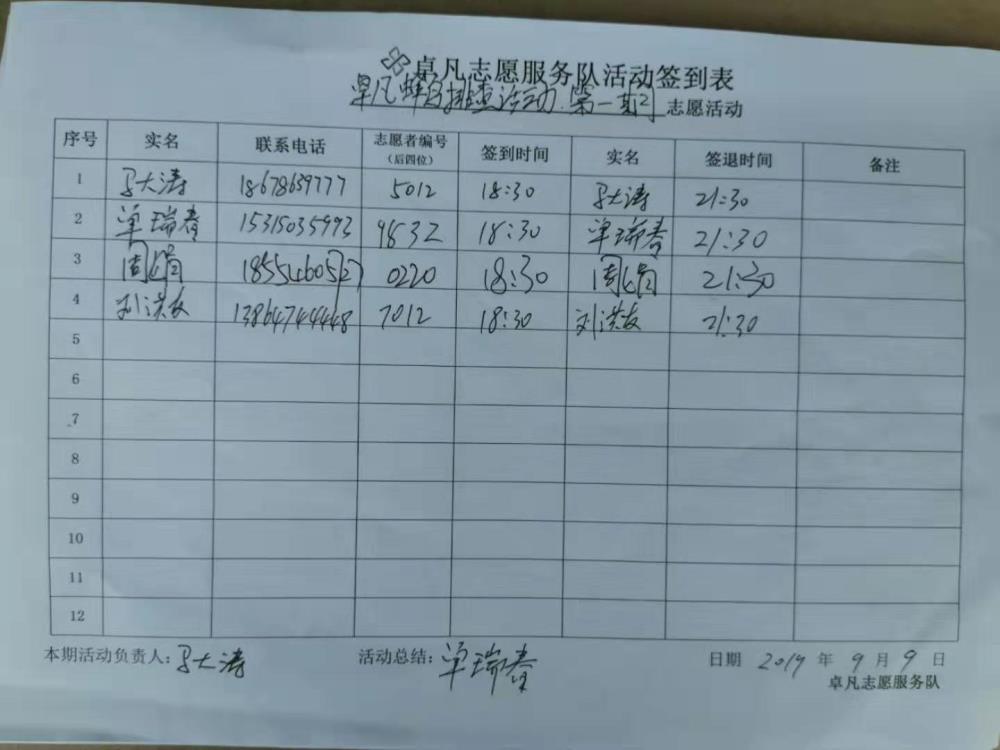 卓凡志愿服务队活动签到表
卓凡蜂窝排查活动.第一期 志愿活动
序号 实名 联系电话 志愿者编号（后四位） 签到时间 实名 签退时间 备注
1 马大涛 18678639777 5012 18:30 马大涛 21:30
2 单瑞春 15315035993 9832 18:30 单瑞春 21:30
3 18554605727 0220 18:30 21:30
4 刘洪友 13864744448 7012 18:30 刘洪友 21:30
5
6
7
8
9
10
11
12
本期活动负责人：马大涛 活动总结：单瑞春 日期 2019 年 9 月 9 日
卓凡志愿服务队